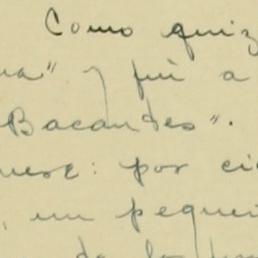 Como quiz
na" y fuí a
Bacantes".
nese: por ci
, un pequeñ
de la